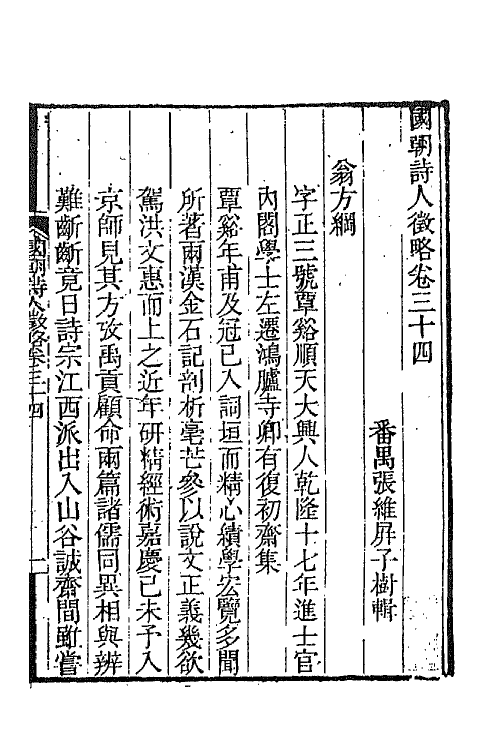 國朝詩人徵略卷三十四
番禺張維屛子樹輯
翁方綱
字正三號覃谿順天大興人乾隆十七年進士官
內閣學士左遷鴻臚寺卿有復初齋集
覃谿年甫及冠已入詞垣而精心績學宏覽多聞
所著兩漢金石記剖析毫芒參以說文正義幾欲
駕洪文惠而上之近年研精經術嘉慶己未予入
京師見其方攷禹貢顧命兩篇諸儒同異相與辨
難齗齗竟日詩宗江西派出入山谷誠齋間雖嘗
國朝詩人徵略卷三十四 一